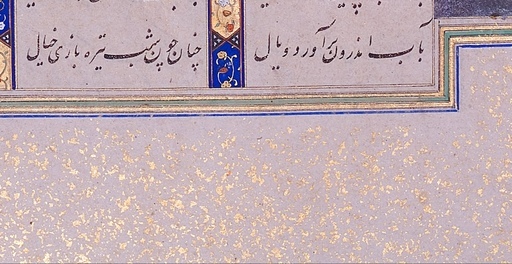 بآب اندرون گر آورد و یال
چنان چون شب تیره بازی خیال